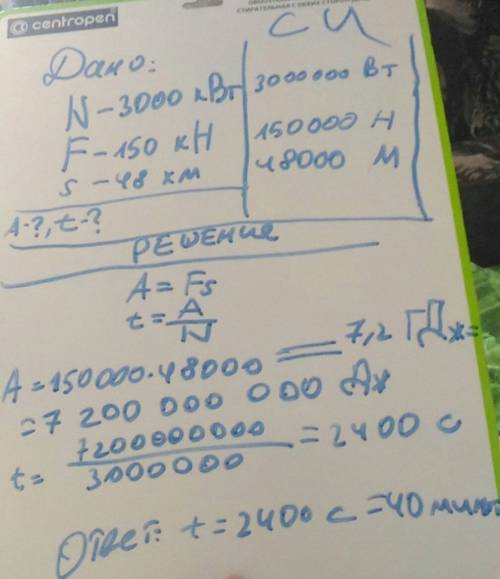 centropen
СТИРАТЕЛЬНАЯ С ОБЕИХ СТОРОН
СИ
Дано:
N - 3000 кВт 3000000 Вт
F - 150 кН 150000 Н
s - 48 км 48000 М
A-?, t-?
РЕШЕНИЕ
A = Fs
t = A/N
A = 150000·48000 = 7,2 ГДж =
= 7 200 000 000 Дж
t = 7200000000/3000000 = 2400 с
Ответ: t = 2400 с = 40 минут